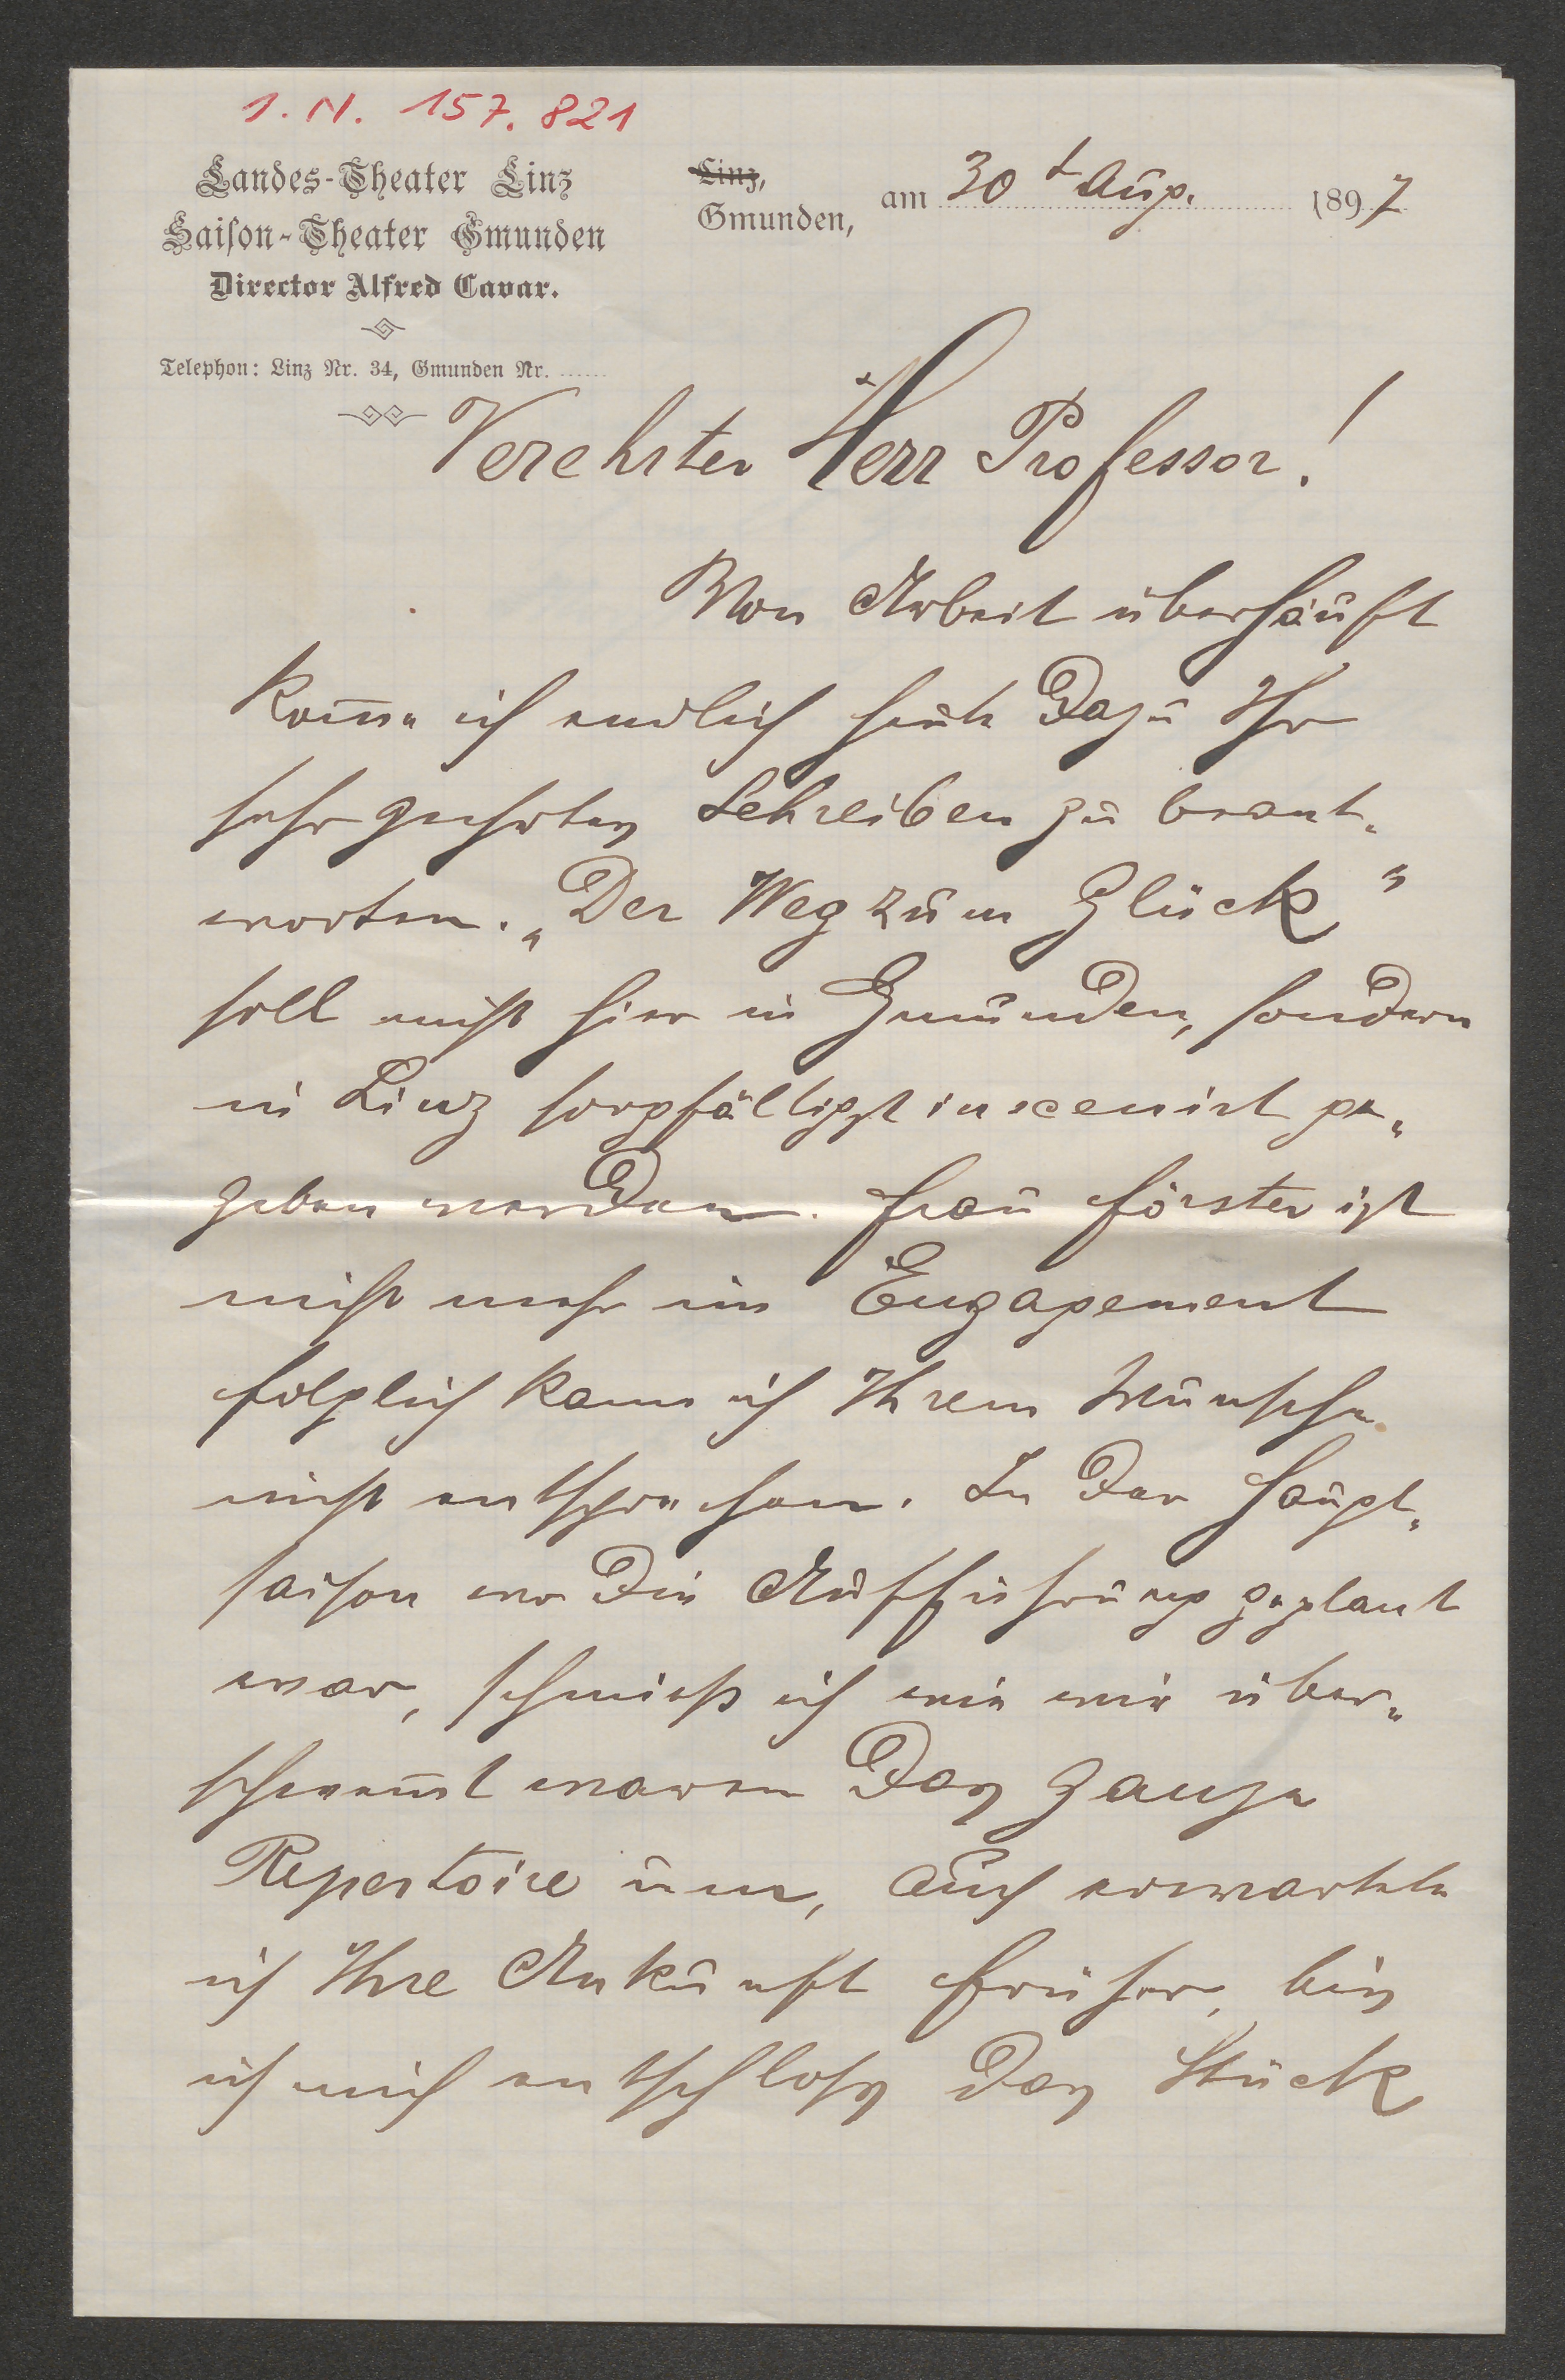 I. N. 157.821
Landes-Theater Linz
Saison-Theater Gmunden
Director Alfred Cavar.
Telephon: Linz Nr. 34, Gmunden Nr. ......
Linz,
Gmunden,
am 30t Aug. 1897
Verehrter Herr Professor!
Von Arbeit überhäuft
kom̅e ich endlich heute dazu Ihr
sehr geehrtes Schreiben zu beant-
worten. „Der Weg zum Glück"
soll nicht hier in Gmunden, sondern
in Linz sorgfältigst inscenirt ge-
geben werden. Frau Förster ist
nicht mehr im Engagement
folglich kann ich Ihrem Wunsche
nicht entsprechen. In der Haupt-
saison wo die Aufführung geplant
war, schmieß ich wie wir über-
schwem̅t waren das ganze
Repertoire um, auch erwartete
ich Ihre Ankunft früher, bis
ich mich entschloss das Stück